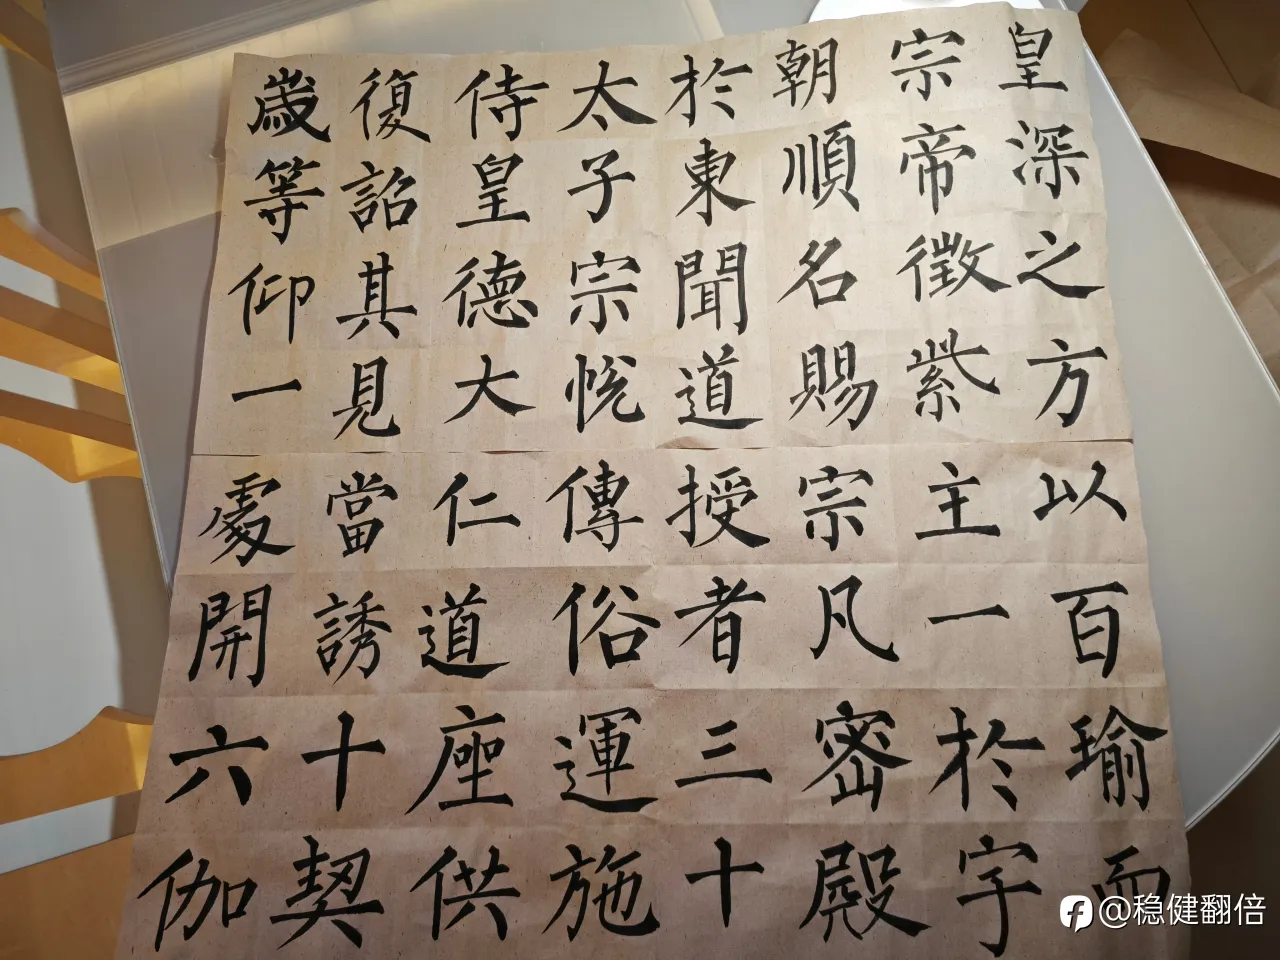 皇深之方以百瑜而
宗帝徵紫主一於字
朝順名賜宗凡密殿
於東聞道授者三十
太子宗悅傳俗運施
侍皇德大仁道座供
復詔其見當誘十契
歲等仰一處開六伽
@稳健翻倍